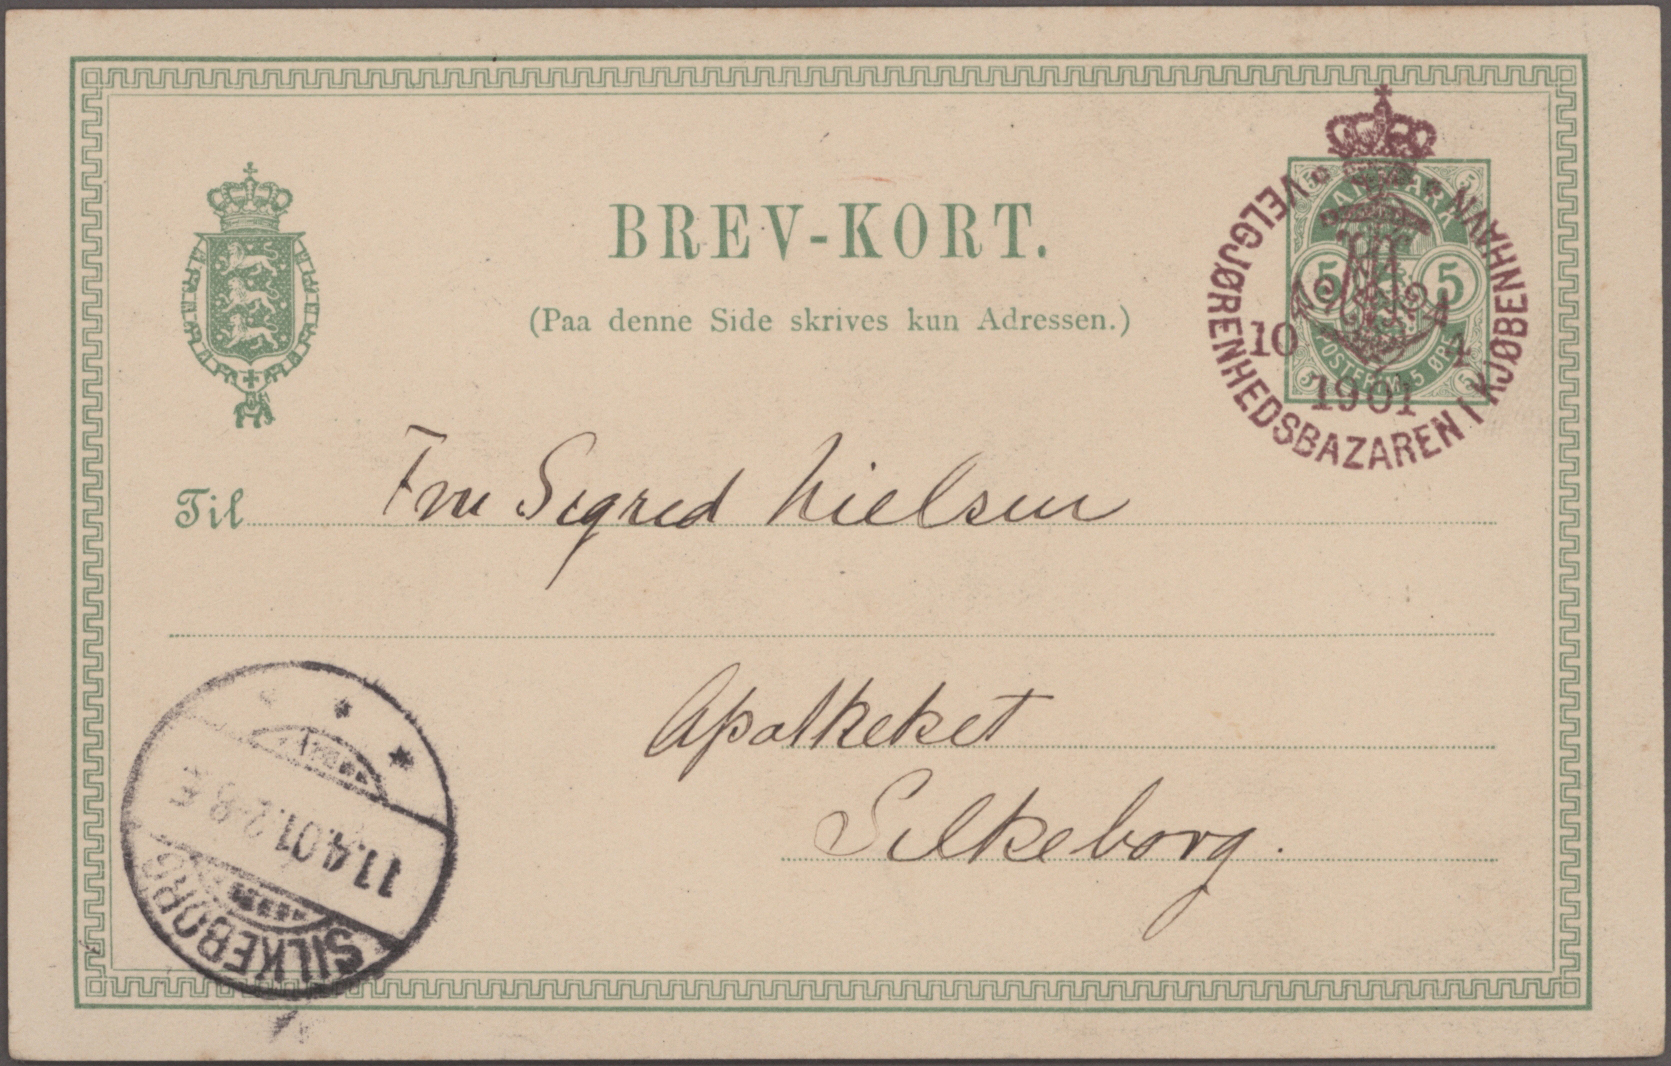 BREV-KORT.
(Paa denne Side skrives kun Adressen.)
DANMARK
5 5
POSTFRIM. 5 ØRE
VELGJØRENHEDSBAZAREN I KJØBENHAVN
10 4
1901
Til Fru Sigred Nielsen
Apotheket
Silkeborg.
11.4.01.2-8 E
SILKEBORG